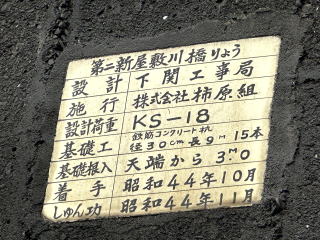 第二新屋敷川橋りょう
設計 下関工事局
施行 株式会社柿原組
設計荷重 KS-18
基礎工 鉄筋コンクリート杭 径30cm長9m 15本
基礎根入 天端から 3m0
着手 昭和44年10月
しゅん功 昭和44年11月